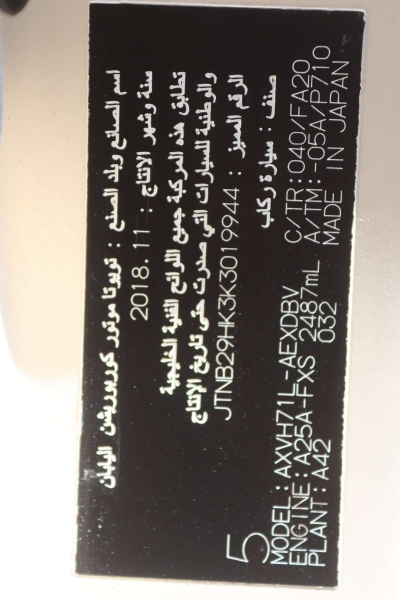 اسم الصانع وبلد الصنع : تويوتا موتور كوربوريشن اليابان
سنة وشهر الإنتاج : 2018.11
تطابق هذه المركبة جميع اللوائح الفنية الخليجية
والوطنية للسيارات التي صدرت حتى تاريخ الإنتاج
الرقم المميز : JTNB29HK3K3019944
صنف : سيارة ركاب
5
MODEL : AXVH71L-AEXDBV C/TR: 040/FA20
ENGINE : A25A-FXS 2487mL A/TM: -05A/P710
PLANT : A42 032 MADE IN JAPAN